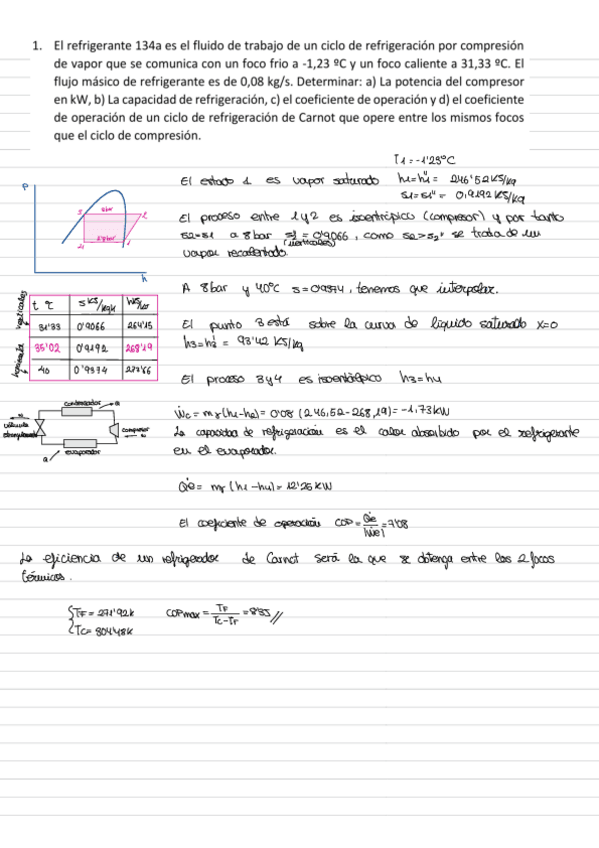 1. El refrigerante 134a es el fluido de trabajo de un ciclo de refrigeración por compresión
de vapor que se comunica con un foco frio a -1,23 ºC y un foco caliente a 31,33 ºC. El
flujo másico de refrigerante es de 0,08 kg/s. Determinar: a) La potencia del compresor
en kW, b) La capacidad de refrigeración, c) el coeficiente de operación y d) el coeficiente
de operación de un ciclo de refrigeración de Carnot que opere entre los mismos focos
que el ciclo de compresión.
T1=-1'23ºC
El estado 1 es vapor saturado h1=h1''= 246'52 KJ/kg
s1=s1''= 0,9192 KJ/kg
P
h
8bar
El proceso entre 1 y 2 es isentrópico (compresor) y por tanto
s2=s1 a 8 bar = 0'9066, como s2>s2'' se trata de un
vapor recalentado.
A 8bar y 40ºC s=0'9374, tenemos que interpolar.
t ºC s KJ/kgK
31'33 0'9066 264'15
35'02 0'9192 268'19
40 0'9374
El punto 3 está sobre la curva de líquido saturado x=0
h3=h3'= 93'42 KJ/kg
El proceso 3 y 4 es isentálpico h3=h4
condensador
válvula
compresor
evaporador
Wc= mr(h1-h2)= 0'08 (246,52-268,19)=-1,73kW
La capacidad de refrigeración es el calor absorbido por el refrigerante
en el evaporador.
Qe= mr (h1-h4)=12'25 kW
El coeficiente de operación COP= Qe/|Wc| =7'08
La eficiencia de un refrigerador de Carnot será la que se obtenga entre los 2 focos
térmicos.
TF= 271'92k COPmax= TF/Tc-TF =8'35//
Tc= 304'48k